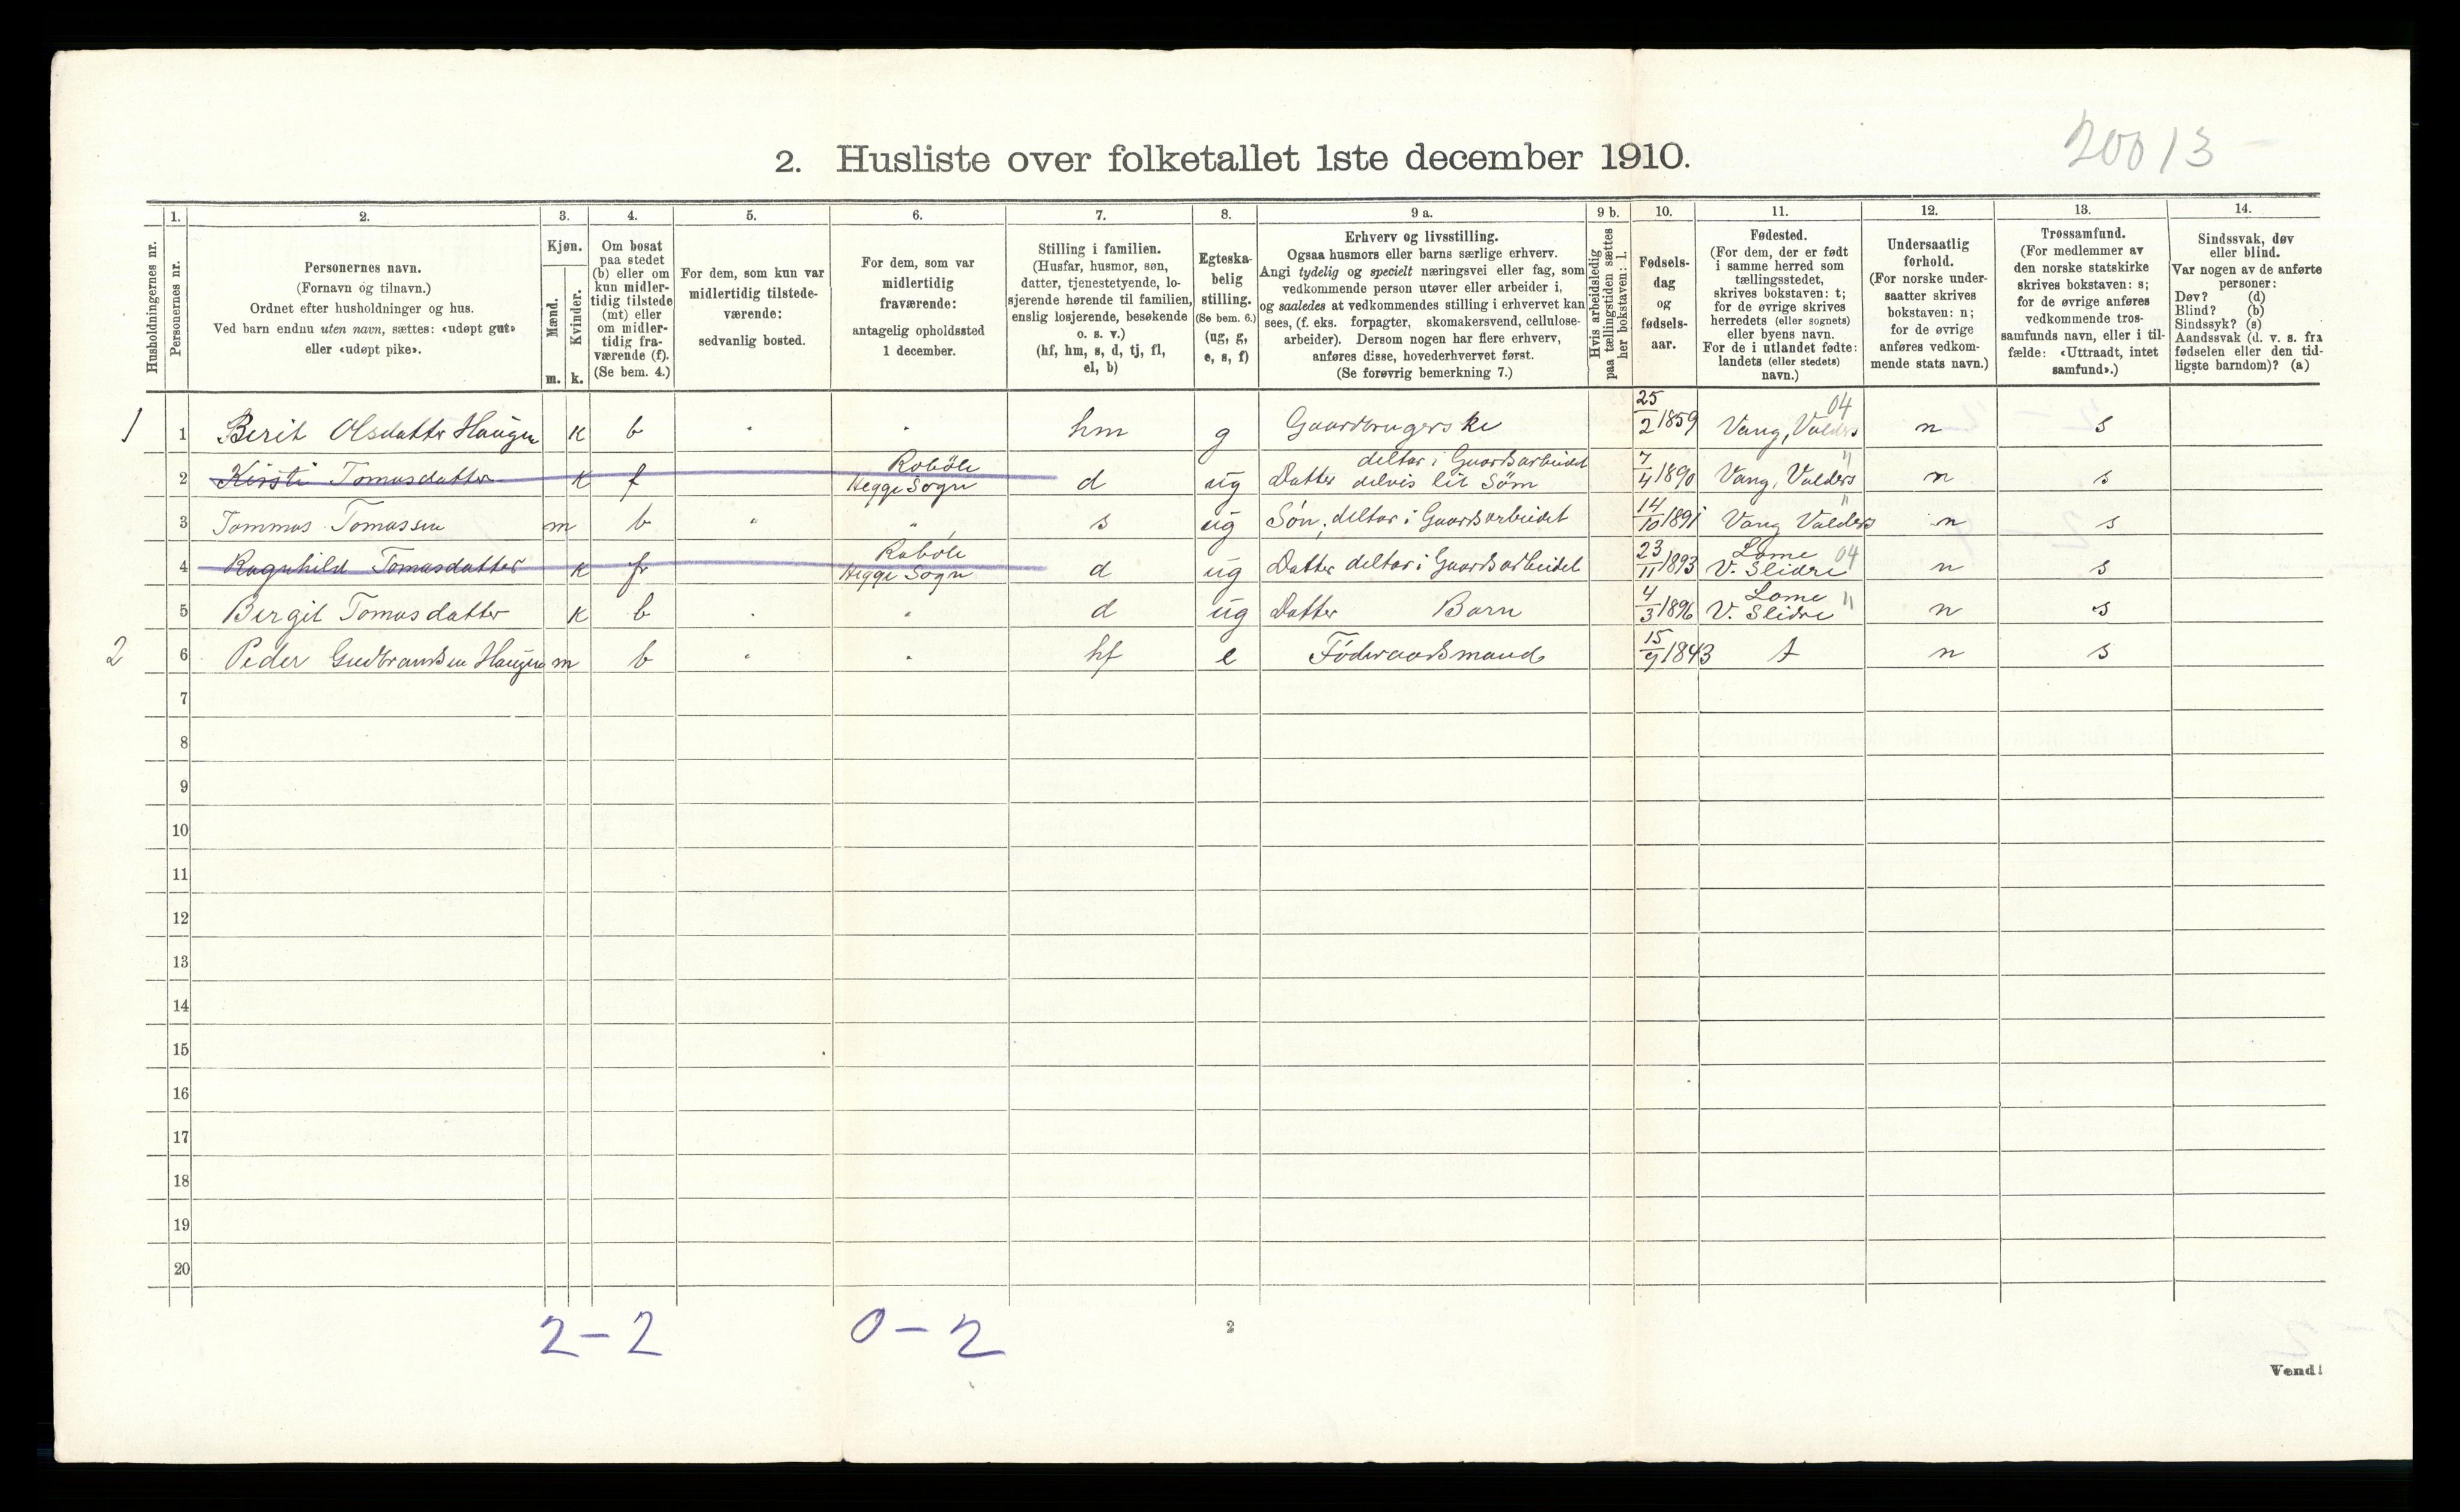 20013
2. Husliste over folketallet 1ste december 1910.
Husholdningernes nr.
1.
Personernes nr.
2.
Personernes navn.
(Fornavn og tilnavn.)
Ordnet efter husholdninger og hus.
Ved barn endnu uten navn, sættes: «udøpt gut»
eller «udøpt pike».
3.
Kjøn.
Mænd.
Kvinder.
m. k.
4.
Om bosat
paa stedet
(b) eller om
kun midler-
tidig tilstede
(mt) eller
om midler-
tidig fra-
værende (f).
(Se bem. 4.)
5.
For dem, som kun var
midlertidig tilstede-
værende:
sedvanlig bosted.
6.
For dem, som var
midlertidig
fraværende:
antagelig opholdssted
1 december.
7.
Stilling i familien.
(Husfar, husmor, søn,
datter, tjenestetyende, lo-
sjerende hørende til familien,
enslig losjerende, besøkende
o. s. v.)
(hf, hm, s, d, tj, fl,
el, b)
8.
Egteska-
belig
stilling.
(Se bem. 6.)
(ug, g,
e, s, f)
9 a.
Erhverv og livsstilling.
Ogsaa husmors eller barns særlige erhverv.
Angi tydelig og specielt næringsvei eller fag, som
vedkommende person utøver eller arbeider i,
og saaledes at vedkommendes stilling i erhvervet kan
sees, (f. eks. forpagter, skomakersvend, cellulose-
arbeider). Dersom nogen har flere erhverv,
anføres disse, hovederhvervet først.
(Se forøvrig bemerkning 7.)
9 b.
Hvis arbeidsledig
paa tællingstiden sættes
her bokstaven: l.
10.
Fødsels-
dag
og
fødsels-
aar.
11.
Fødested.
(For dem, der er født
i samme herred som
tællingsstedet,
skrives bokstaven: t;
for de øvrige skrives
herredets (eller sognets)
eller byens navn.
For de i utlandet fødte:
landets (eller stedets)
navn.)
12.
Undersaatlig
forhold.
(For norske under-
saatter skrives
bokstaven: n;
for de øvrige
anføres vedkom-
mende stats navn.)
13.
Trossamfund.
(For medlemmer av
den norske statskirke
skrives bokstaven: s;
for de øvrige anføres
vedkommende tros-
samfunds navn, eller i til-
fælde: «Uttraadt, intet
samfund».)
14.
Sindssvak, døv
eller blind.
Var nogen av de anførte
personer:
Døv? (d)
Blind? (b)
Sindssyk? (s)
Aandssvak (d. v. s. fra
fødselen eller den tid-
ligste barndom)? (a)
1 1 Berit Olsdatter Haugen K b " " hm g Gaardbrugerske 25/2 1859 Vang, Valders 04 n s
2 Kirsti Tomasdatter K f Roböle Hegge Sogn d ug Datter deltar i Gaardsarbeidet delvis lit Søm 7/4 1890 Vang, Valders " n s
3 Tommas Tomassen m b " " s ug Søn, deltar i Gaardsarbeidet 14/10 1891 Vang Valders " n s
4 Ragnhild Tomasdatter K fr Roböle Hegge Sogn d ug Datter deltar i Gaardsarbeidet 23/11 1893 Lome V. Slidre 04 n s
5 Bergit Tomasdatter K b " " d ug Datter Barn 4/3 1896 Lome V. Slidre " n s
2 6 Peder Gudbrandsen Haugen m b " " hf e Föderaadsmand 15/9 1843 t n s
7
8
9
10
11
12
13
14
15
16
17
18
19
20
2 – 2 0 – 2
2
Vend!